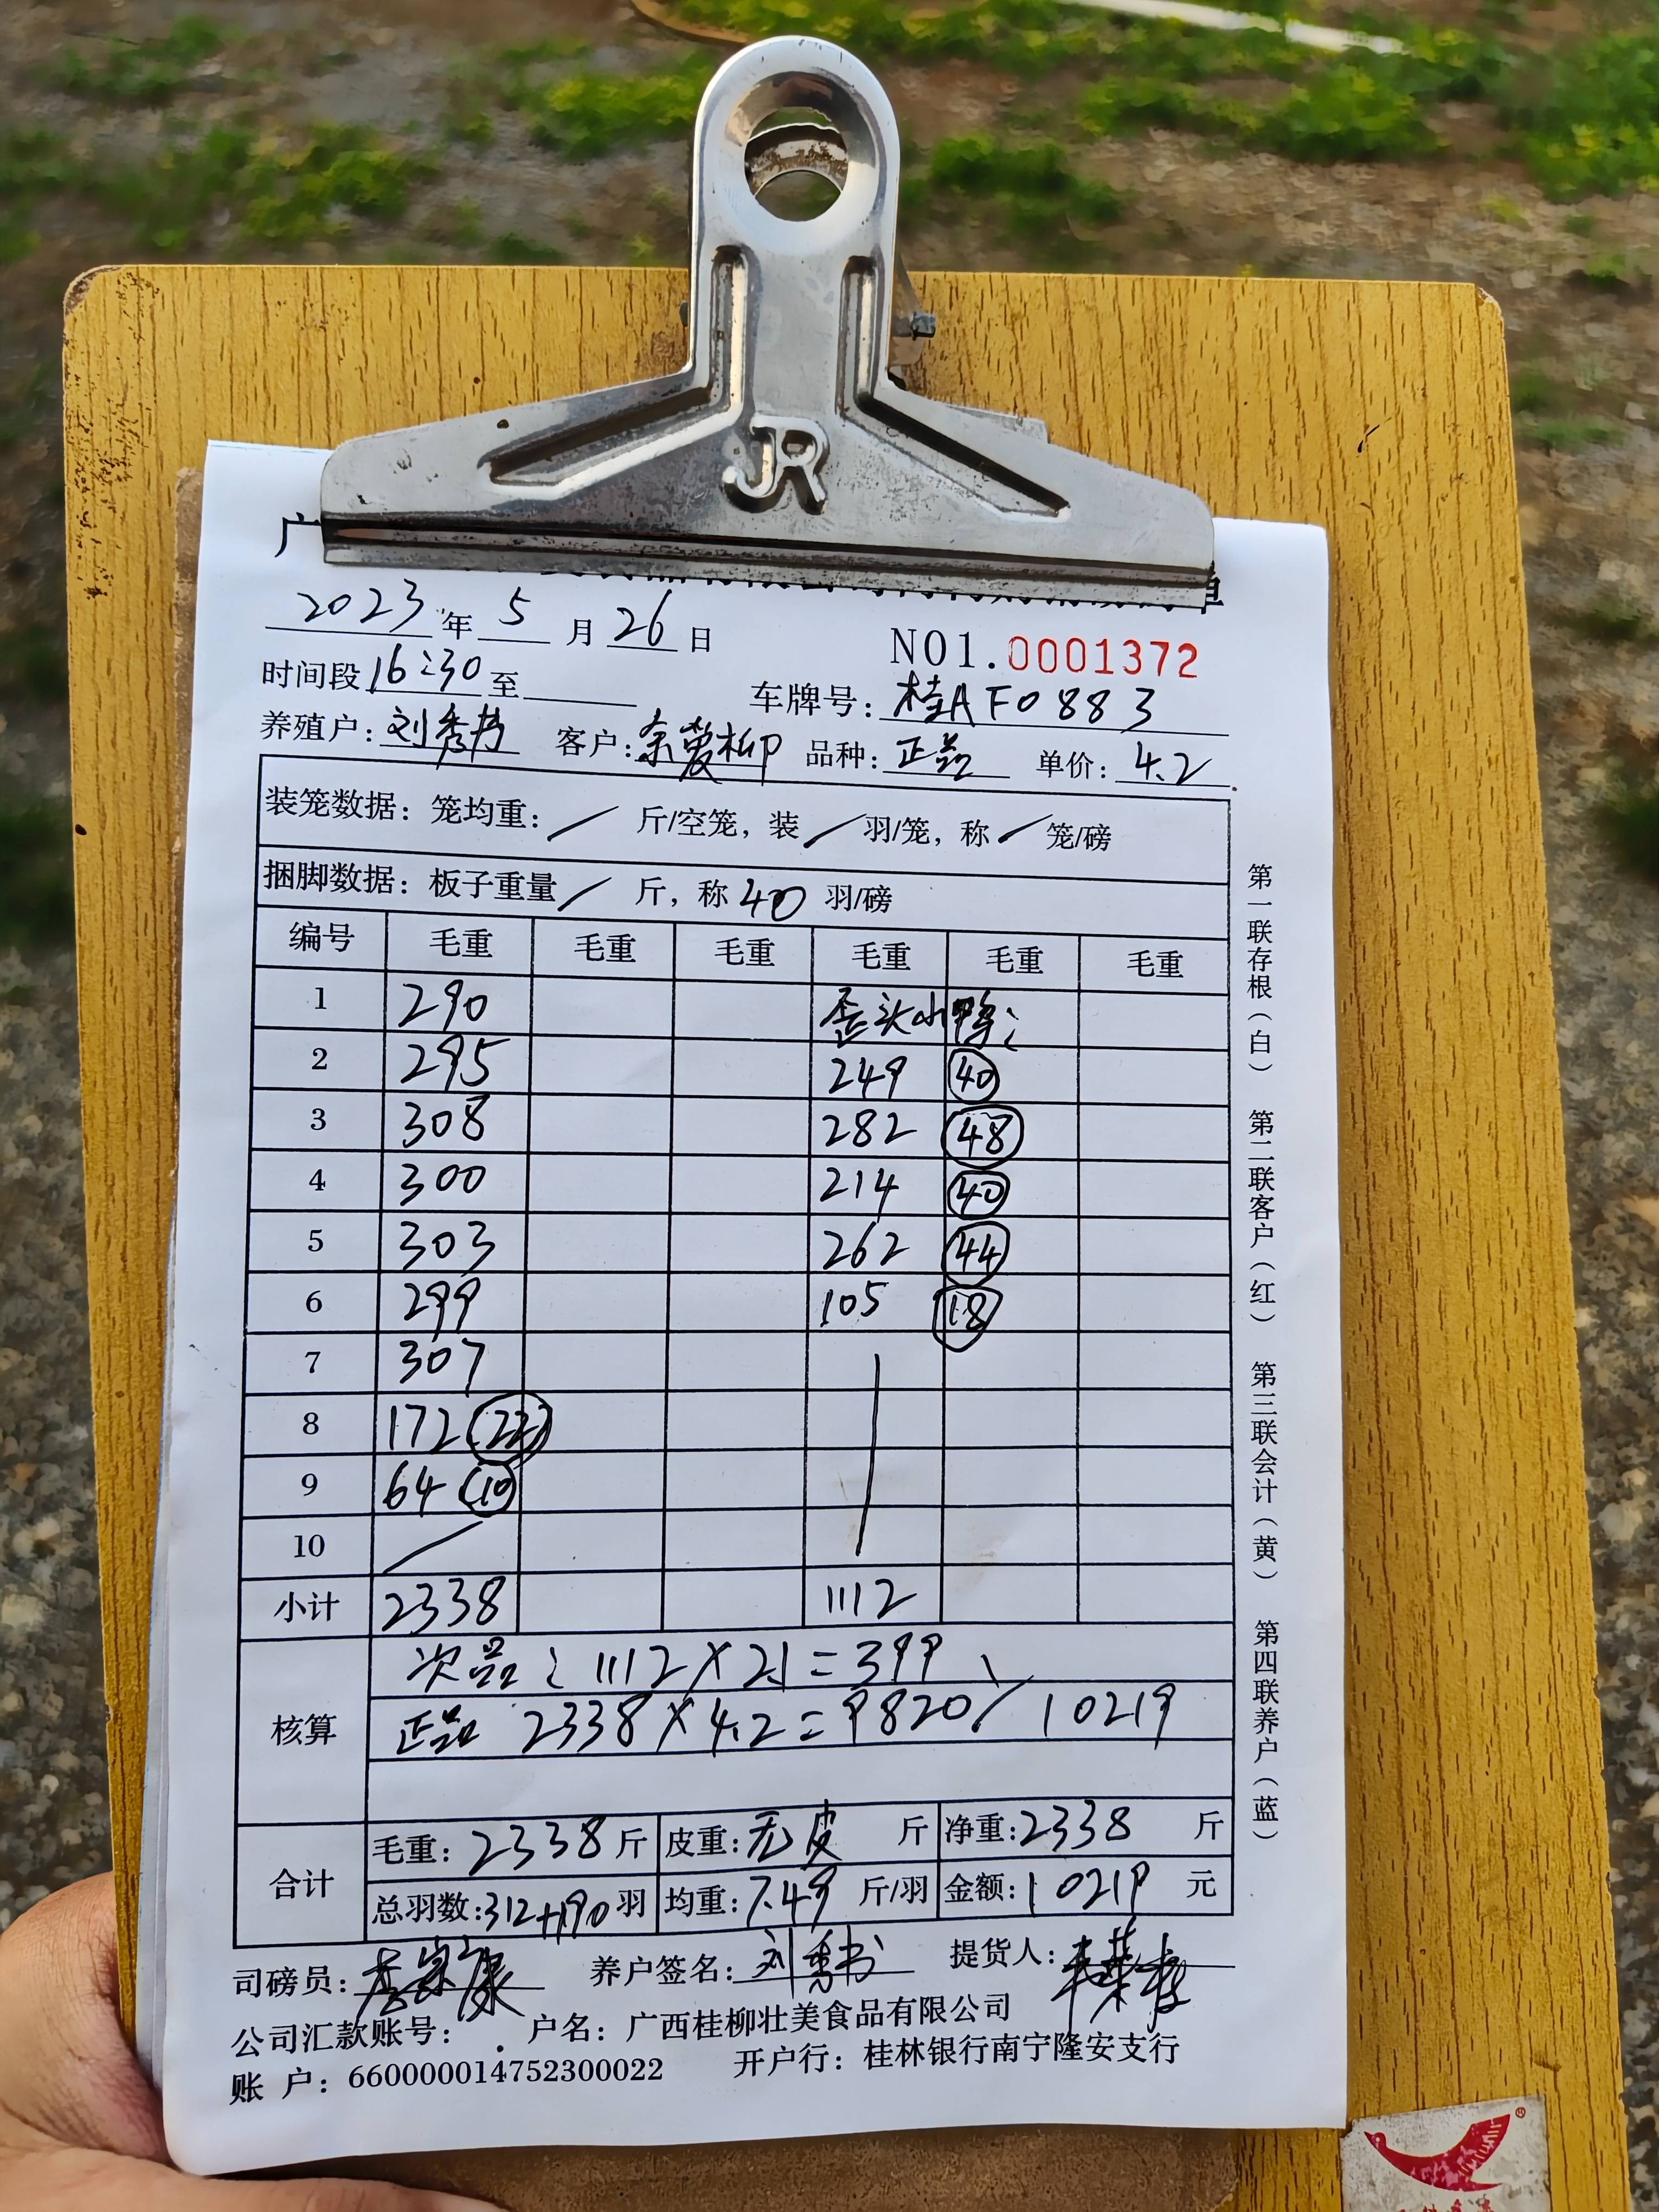 JR
广
2023年5月26日
NO1.0001372
时间段16:30至 车牌号：桂AF0883
养殖户：刘秀书 客户：余爱柳 品种：正品 单价：4.2
装笼数据：笼均重：/ 斤/空笼，装/羽/笼，称/笼/磅
捆脚数据：板子重量/ 斤，称40羽/磅
编号 毛重 毛重 毛重 毛重 毛重 毛重
1 290 歪头小鸭：
2 295 249 40
3 308 282 48
4 300 214 40
5 303 262 44
6 299 105 18
7 307
8 172 (22)
9 64 (10)
10 /
小计 2338 1112
核算
次品：1112X21=399、
正品 2338X4.2=9820/10219
合计
毛重：2338斤 皮重：无皮 斤 净重：2338 斤
总羽数：312+190羽 均重：7.49斤/羽 金额：10219 元
司磅员： 养户签名：刘秀书 提货人：
公司汇款账号： 户名：广西桂柳壮美食品有限公司
账 户：660000014752300022 开户行：桂林银行南宁隆安支行
第一联存根（白） 第二联客户（红） 第三联会计（黄） 第四联养户（蓝）